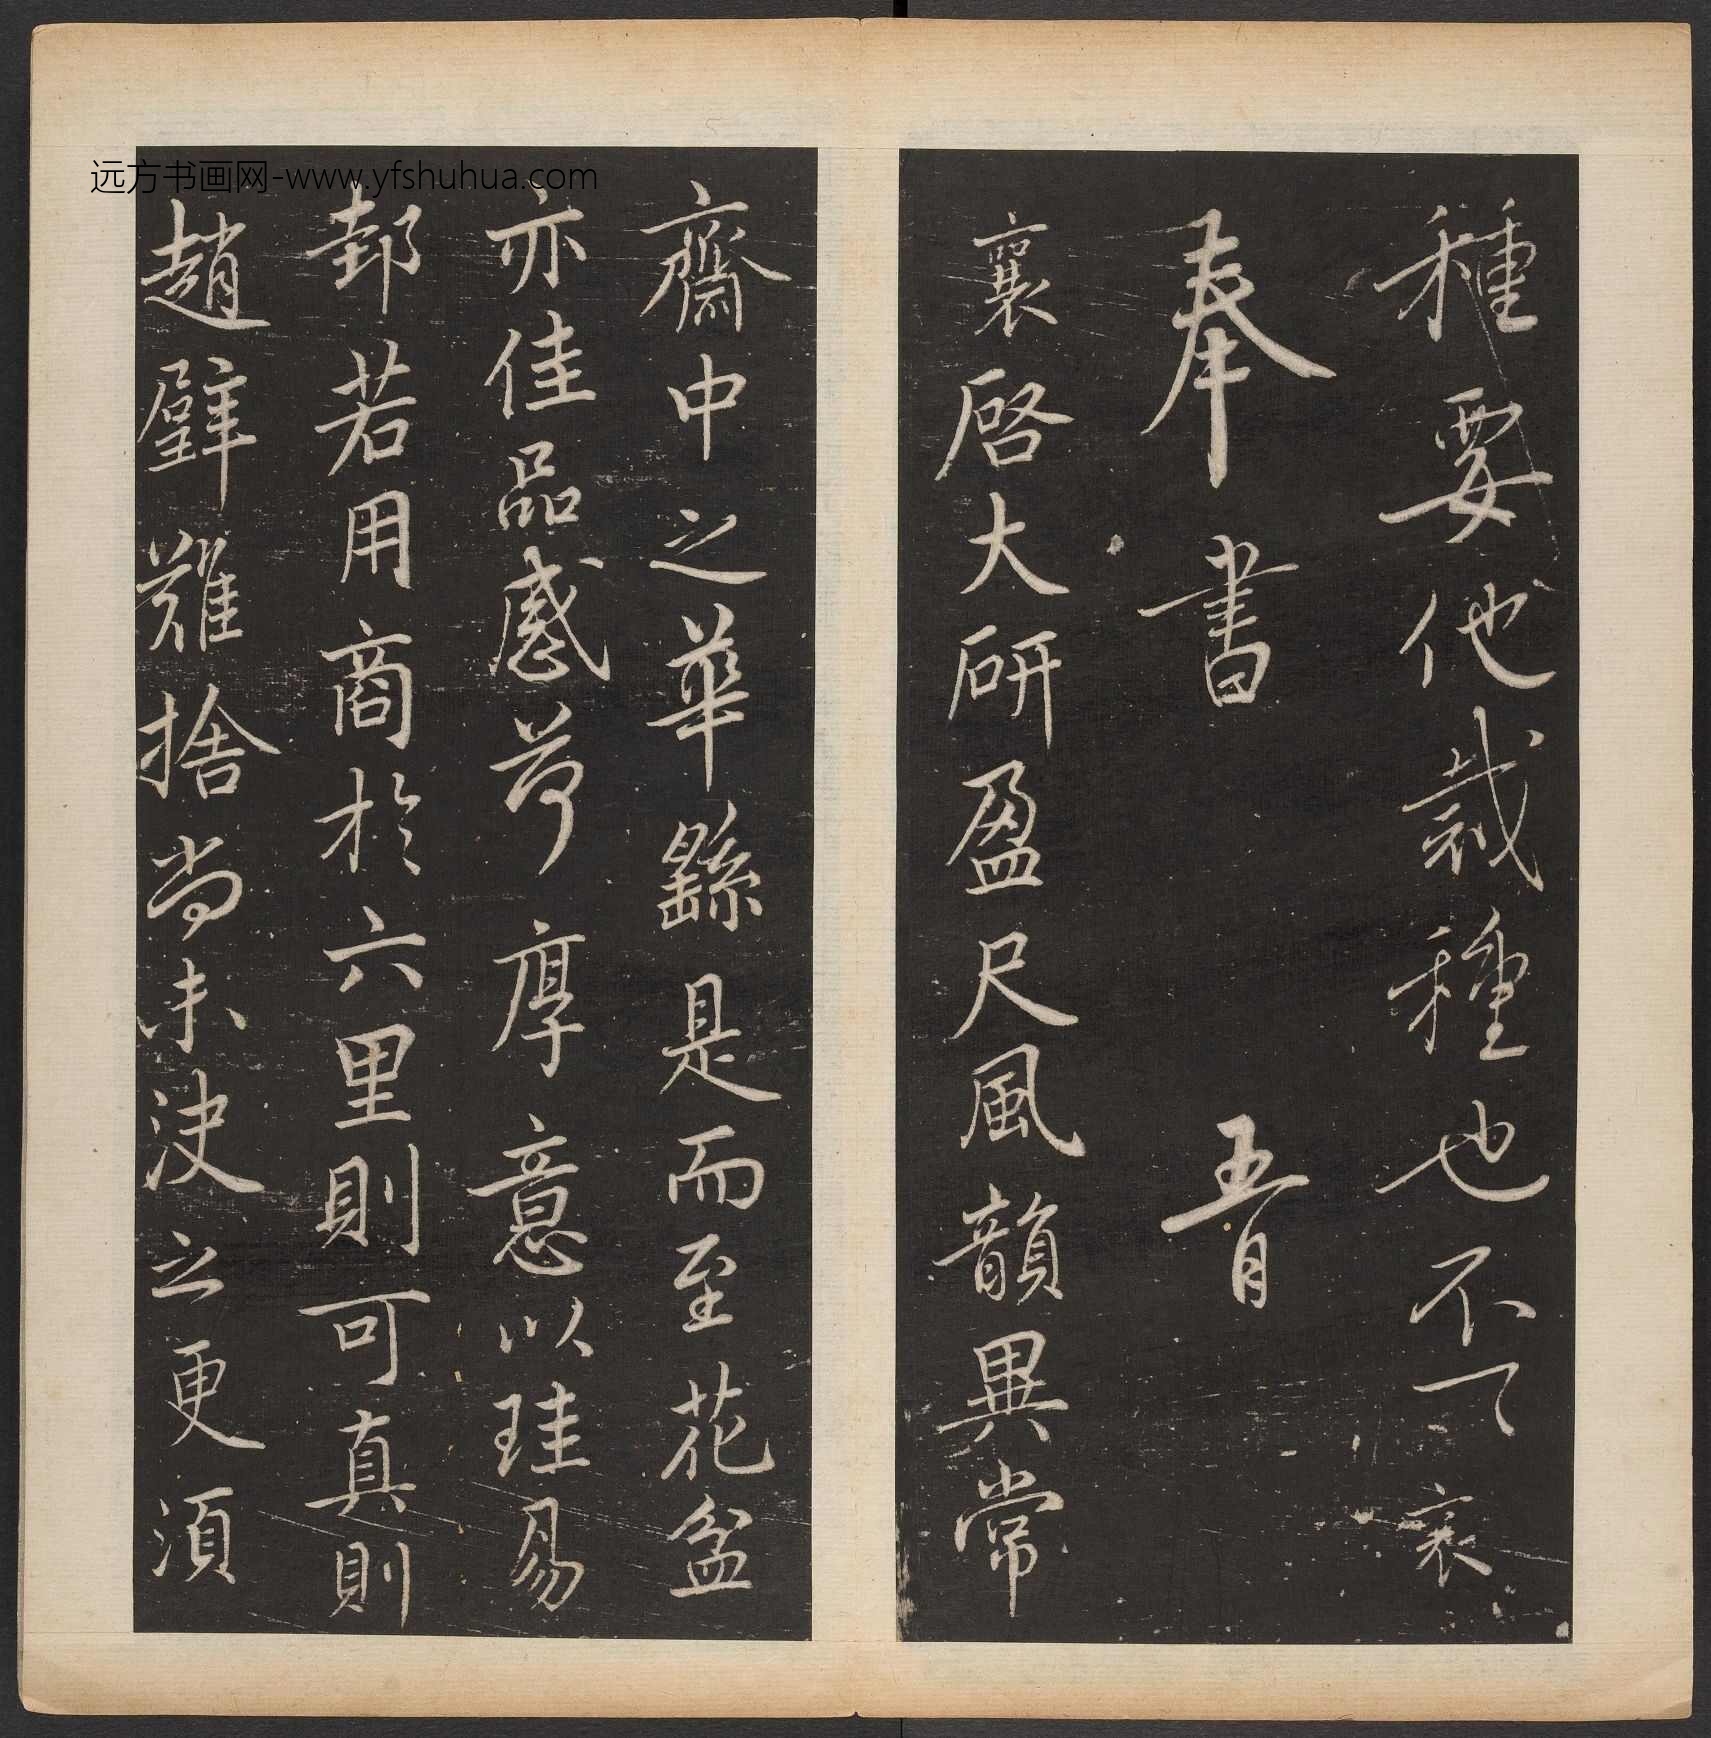 種要他栽種也不一一襄
奉書 五月
襄啓大研盈尺風韻異常
齋中之華繇是而至花盆
亦佳品感荷厚意以珪易
邽若用商於六里則可真則
趙璧難捨尚未決之更須
远方书画网-www.yfshuhua.com